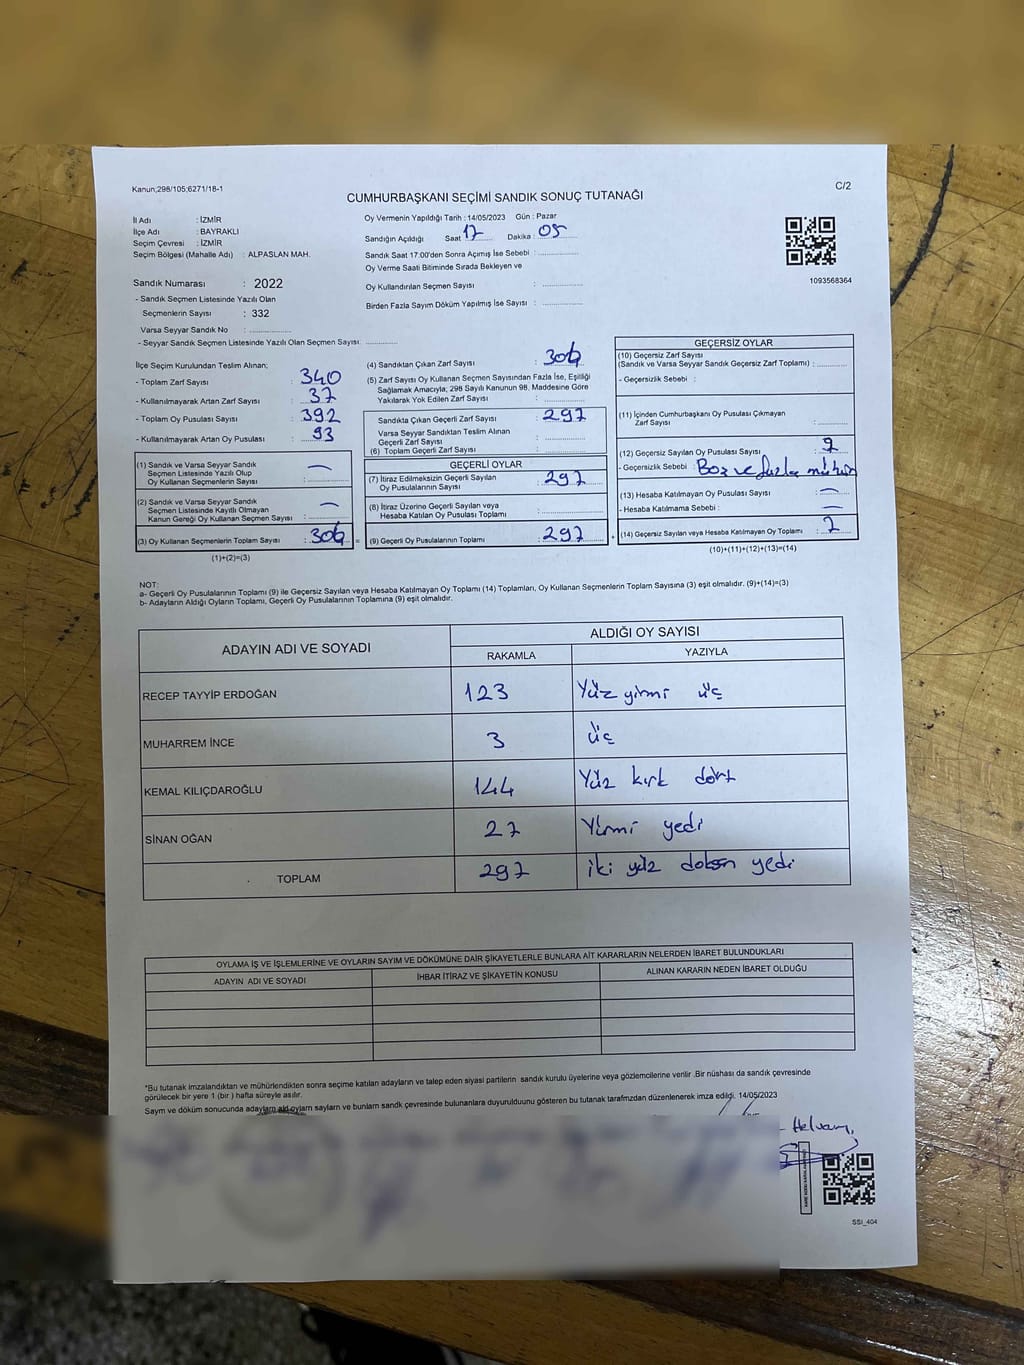 Kanun;298/105;6271/18-1
C/2
CUMHURBAŞKANI SEÇİMİ SANDIK SONUÇ TUTANAĞI
İl Adı : İZMİR
İlçe Adı : BAYRAKLI
Seçim Çevresi : İZMİR
Seçim Bölgesi (Mahalle Adı) : ALPASLAN MAH.
Sandık Numarası : 2022
- Sandık Seçmen Listesinde Yazılı Olan
Seçmenlerin Sayısı : 332
Varsa Seyyar Sandık No : ..............
- Seyyar Sandık Seçmen Listesinde Yazılı Olan Seçmen Sayısı: ............
Oy Vermenin Yapıldığı Tarih : 14/05/2023 Gün : Pazar
Sandığın Açıldığı Saat 17 Dakika : 05
Sandık Saat 17:00'den Sonra Açımış İse Sebebi : ..............
Oy Verme Saati Bitiminde Sırada Bekleyen ve
Oy Kullandırılan Seçmen Sayısı : ..............
Birden Fazla Sayım Döküm Yapılmış İse Sayısı : ..............
1093568364
İlçe Seçim Kurulundan Teslim Alınan;
- Toplam Zarf Sayısı : 340
- Kullanılmayarak Artan Zarf Sayısı : 37
- Toplam Oy Pusulası Sayısı : 392
- Kullanılmayarak Artan Oy Pusulası : 93
(1) Sandık ve Varsa Seyyar Sandık
Seçmen Listesinde Yazılı Olup
Oy Kullanan Seçmenlerin Sayısı : —
(2) Sandık ve Varsa Seyyar Sandık
Seçmen Listesinde Kayıtlı Olmayan
Kanun Gereği Oy Kullanan Seçmen Sayısı : —
(3) Oy Kullanan Seçmenlerin Toplam Sayısı : 304 =
(1)+(2)=(3)
(4) Sandıktan Çıkan Zarf Sayısı : 304
(5) Zarf Sayısı Oy Kullanan Seçmen Sayısından Fazla İse, Eşitliği
Sağlamak Amacıyla; 298 Sayılı Kanunun 98. Maddesine Göre
Yakılarak Yok Edilen Zarf Sayısı : ..............
Sandıkta Çıkan Geçerli Zarf Sayısı : 297
Varsa Seyyar Sandıktan Teslim Alınan
Geçerli Zarf Sayısı : ..............
(6) Toplam Geçerli Zarf Sayısı : ..............
GEÇERLİ OYLAR
(7) İtiraz Edilmeksizin Geçerli Sayılan
Oy Pusulalarının Sayısı : 297
(8) İtiraz Üzerine Geçerli Sayılan veya
Hesaba Katılan Oy Pusulası Toplamı : ..............
(9) Geçerli Oy Pusulalarının Toplamı : 297 +
GEÇERSİZ OYLAR
(10) Geçersiz Zarf Sayısı
(Sandık ve Varsa Seyyar Sandık Geçersiz Zarf Toplamı) : ..........
- Geçersizlik Sebebi : ..............
(11) İçinden Cumhurbaşkanı Oy Pusulası Çıkmayan
Zarf Sayısı : ..........
(12) Geçersiz Sayılan Oy Pusulası Sayısı : 7
- Geçersizlik Sebebi : Boş ve fazla mühür
(13) Hesaba Katılmayan Oy Pusulası Sayısı : —
- Hesaba Katılmama Sebebi : —
(14) Geçersiz Sayılan veya Hesaba Katılmayan Oy Toplamı : 7
(10)+(11)+(12)+(13)=(14)
NOT:
a- Geçerli Oy Pusulalarının Toplamı (9) ile Geçersiz Sayılan veya Hesaba Katılmayan Oy Toplamı (14) Toplamları, Oy Kullanan Seçmenlerin Toplam Sayısına (3) eşit olmalıdır. (9)+(14)=(3)
b- Adayların Aldığı Oyların Toplamı, Geçerli Oy Pusulalarının Toplamına (9) eşit olmalıdır.
ADAYIN ADI VE SOYADI
ALDIĞI OY SAYISI
RAKAMLA YAZIYLA
RECEP TAYYİP ERDOĞAN 123 Yüz yirmi üç
MUHARREM İNCE 3 üç
KEMAL KILIÇDAROĞLU 144 Yüz kırk dört
SİNAN OĞAN 27 Yirmi yedi
TOPLAM 297 iki yüz doksan yedi
OYLAMA İŞ VE İŞLEMLERİNE VE OYLARIN SAYIM VE DÖKÜMÜNE DAİR ŞİKAYETLERLE BUNLARA AİT KARARLARIN NELERDEN İBARET BULUNDUKLARI
ADAYIN ADI VE SOYADI İHBAR İTİRAZ VE ŞİKAYETİN KONUSU ALINAN KARARIN NEDEN İBARET OLDUĞU
*Bu tutanak imzalandıktan ve mühürlendikten sonra seçime katılan adayların ve talep eden siyasi partilerin sandık kurulu üyelerine veya gözlemcilerine verilir .Bir nüshası da sandık çevresinde
görülecek bir yere 1 (bir ) hafta süreyle asılır.
Sayım ve döküm sonucunda adayların aldı oyların sayları ve bunların sandk çevresinde bulunanlara duyurulduunu gösteren bu tutanak tarafmzdan düzenlenerek imza edildi. 14/05/2023
SSI_404